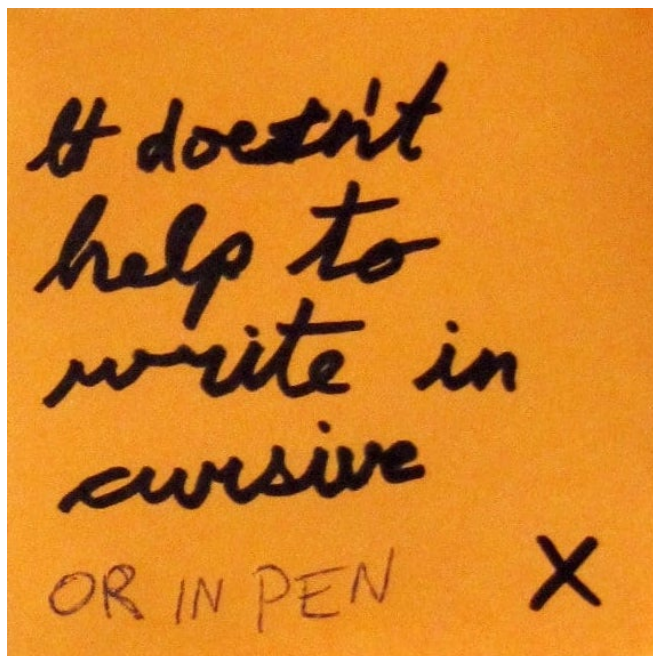 It doesn't
help to
write in
cursive
OR IN PEN X